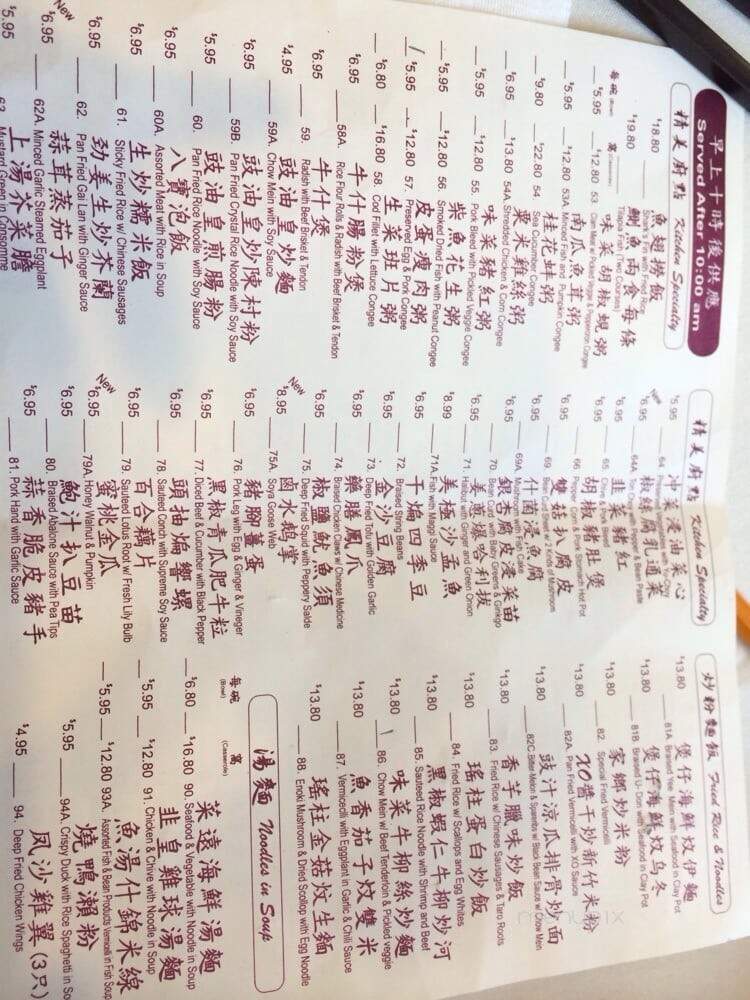 早上十時後供應
Served After 10:00 am
精美廚點 Kitchen Specialty
每碗 (Bowl) 窩 (Casserole)
$18.80
魚翅撈飯
$19.80
鯽魚兩食 每條
Tilapia Fish (Two Courses)
$5.95 $12.80 53.
味菜胡椒蜆粥
$5.95 $12.80 53A. Minced Fish and Pumpkin Congee
南瓜魚茸粥
$9.80 $22.80 54. Sea Cucumber Congee
桂花蚌粥
$6.95 $13.80 54A. Shredded Chicken & Corn Congee
粟米雞絲粥
$5.95 $12.80 55. Pork Bleed with Pickled Veggie Congee
味菜豬紅粥
$5.95 $12.80 56. Smoked Dried Fish with Peanut Congee
柴魚花生粥
$5.95 $12.80 57. Preserved Egg & Pork Congee
皮蛋瘦肉粥
$6.80 $16.80 58. Cod Fillet with Lettuce Congee
生菜班片粥
$6.95 58A. Rice Flour Rolls & Radsh with Beef Brisket & Tendon
牛什腸粉煲
$6.95 59. Radsh with Beef Brisket & Tendon
牛什煲
$4.95 59A. Chow Mein with Soy Sauce
豉油皇炒麵
$6.95 59B. Pan Fried Crystal Rice Noodle with Soy Sauce
豉油皇炒陳村粉
$5.95 60. Pan Fried Rice Noodle with Soy Sauce
豉油皇煎腸粉
$6.95 60A. Assorted Meat with Rice in Soup
八寶泡飯
$6.95 61. Sticky Fried Rice w/ Chinese Sausages
生炒糯米飯
$6.95 62. Pan Fried Gai Lan with Ginger Sauce
勁姜生炒芥蘭
New
$6.95 62A. Minced Garlic Steamed Eggplant
蒜茸蒸茄子
$5.95 63. Mustard Green in Consomme
上湯芥菜膽
精美廚點 Kitchen Specialty
$5.95 64.
冲菜浸油菜心
New
$6.95 64A. Ton Choy with Pepper & Bean Paste
椒絲腐乳通菜
$6.95 65. Chive & Pork Bleed
韭菜豬紅
$6.95 66. Pepper Corn & Pork Stomach Hot Pot
胡椒豬肚煲
$6.95 69. Bean Curd Sheet w/ 2 Kinds of Mushroom
雙菇扒腐皮
$6.95 69A. Mushroom with Fish Cake
什菌浸魚腐
$6.95 70. Bean Curd with Baby Greens & Ginkgo
銀杏腐皮浸菜苗
$6.95 71. Halibut with Ginger and Green Onion
姜蔥爆哈利拔
$8.99 71A. Fish with Maggi Sauce
美極沙孟魚
$6.95 72. Braised String Beans
干煸四季豆
$6.95 73. Deep Fried Tofu with Golden Garlic
金沙豆腐
$6.95 74. Braised Chicken Claws w/ Chinese Medione
藥膳鳳爪
$6.95 75. Deep Fried Squid with Peppery Salde
椒鹽魷魚須
New
$8.95 75A. Soya Goose Web
鹵水鵝掌
$6.95 76. Pork Leg with Egg & Ginger & Vineger
豬腳薑蛋
$6.95 77. Diced Beef & Cucumber with Black Pepper
黑椒青瓜肥牛粒
$6.95 78. Sauteed Conch with Supreme Soy Sauce
頭抽煸響螺
$6.95 79. Sauteed Lotus Root w/ Fresh Lily Bulb
百合藕片
New
$6.95 79A. Honey Walnut & Pumpkin
蜜桃金瓜
$6.95 80. Braised Abalone Sauce with Pea Tips
鮑汁扒豆苗
$6.95 81. Pork Hand with Garlic Sauce
蒜香脆皮豬手
炒粉麵飯 Fried Rice & Noodles
$13.80 81A. Braised Yee Mein with Seafood in Clay Pot
煲仔海鮮炆伊麵
$13.80 81B. Braised U-Don with Seafood in Clay Pot
煲仔海鮮炆烏冬
$13.80 82. Special Fried Vermicelli
家鄉炒米粉
$13.80 82A. Pan Fried Vermicelli with XO Sauce
XO醬干炒新竹米粉
$13.80 82C. Bitter-Melon & Spareribs w/ Black Bean Sauce w/ Chow Mein
豉汁涼瓜排骨炒面
$13.80 83. Fried Rice w/ Chinese Sausages & Taro Roots
香芋臘味炒飯
$13.80 84. Fried Rice w/ Scallops and Egg Whites
瑤柱蛋白炒飯
$13.80 85. Sauteed Rice Noodle with Shrimp and Beef
黑椒蝦仁牛柳炒河
$13.80 86. Chow Mein w/ Beef Tenderloin & Pickled veggie
味菜牛柳絲炒麵
$13.80 87. Vermiceolli with Eggplant in Garlic & Chili Sauce
魚香茄子炆雙米
$13.80 88. Enoki Mushroom & Dried Scollop with Egg Noodle
瑤柱金菇炆生麵
湯麵 Noodles in Soup
每碗 (Bowl) 窩 (Casserole)
$6.80 $16.80 90. Seafood & Vegetable with Noodle in Soup
菜遠海鮮湯麵
$5.95 $12.80 91. Chicken & Chive with Noodle in Soup
韭皇雞球湯麵
$5.95 $12.80 93A. Assorted Fish & Bean Products Vermicelli in Fish Soup
魚湯什錦米線
$5.95 94A. Crispy Duck with Rice Spaghetti in So
燒鴨瀨粉
$4.95 94. Deep Fried Chicken Wings
鳳沙雞翼(3只)